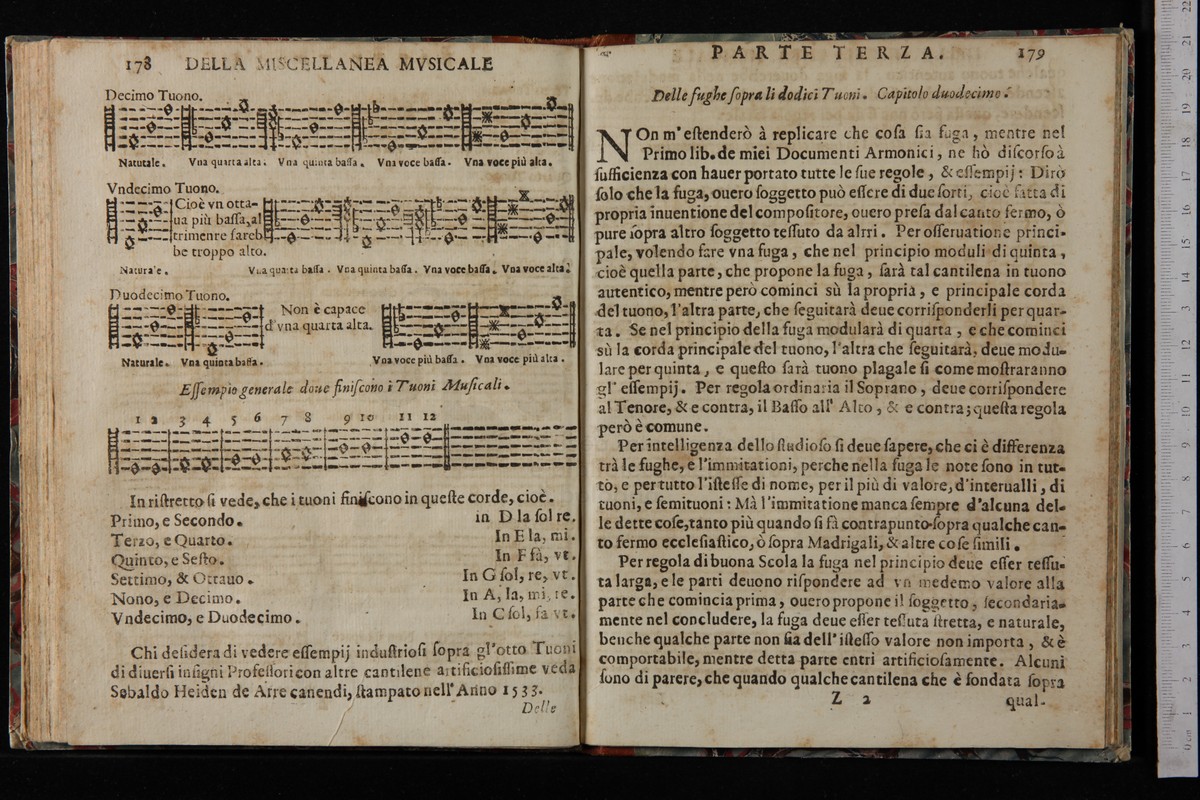 178 DELLA MISCELLANEA MVSICALE
Decimo Tuono.
Natutale. Vna quarta alta. Vna quinta baſſa. Vna voce baſſa. Vna voce più alta.
Vndecimo Tuono.
Cioè vn otta-
ua più baſſa, al
trimenre ſareb
be troppo alto.
Natura'e. Vna quarta baſſa. Vna quinta baſſa. Vna voce baſſa. Vna voce alta.
Duodecimo Tuono.
Non è capace
d'vna quarta alta.
Naturale. Vna quinta baſſa. Vna voce più baſſa. Vna voce più alta.
Eſſempio generale doue finiſcono i Tuoni Muſicali.
1 2 3 4 5 6 7 8 9 10 11 12
In riſtretto ſi vede, che i tuoni finiſcono in queſte corde, cioè.
Primo, e Secondo. in D la ſol re.
Terzo, e Quarto. In E la, mi.
Quinto, e Seſto. In F fà, vt.
Settimo, & Ottauo. In G ſol, re, vt.
Nono, e Decimo. In A, la, mi, re.
Vndecimo, e Duodecimo. In C ſol, fa vt.
Chi deſidera di vedere eſſempij induſtrioſi ſopra gl'otto Tuoni
di diuerſi inſigni Profeſſori con altre cantilene artificioſiſſime veda
Sebaldo Heiden de Arre canendi, ſtampato nell' Anno 1533.
Delle
PARTE TERZA. 179
Delle fughe ſopra li dodici Tuoni. Capitolo duodecimo.
NOn m'eſtenderò à replicare che coſa ſia fuga, mentre nel
Primo lib. de miei Documenti Armonici, ne hò diſcorſo à
ſufficienza con hauer portato tutte le ſue regole, & eſſempij: Dirò
ſolo che la fuga, ouero ſoggetto può eſſere di due ſorti, cioè fatta di
propria inuentione del compoſitore, ouero preſa dal canto fermo, ò
pure ſopra altro ſoggetto teſſuto da alrri. Per oſſeruatione princi-
pale, volendo fare vna fuga, che nel principio moduli di quinta,
cioè quella parte, che propone la fuga, ſarà tal cantilena in tuono
autentico, mentre però cominci sù la propria, e principale corda
del tuono, l'altra parte, che ſeguitarà deue corriſponderli per quar-
ta. Se nel principio della fuga modularà di quarta, e che cominci
sù la corda principale del tuono, l'altra che ſeguitarà, deue modu-
lare per quinta, e queſto ſarà tuono plagale ſi come moſtraranno
gl' eſſempij. Per regola ordinaria il Soprano, deue corriſpondere
al Tenore, & e contra, il Baſſo all' Alto, & e contra; queſta regola
però è comune.
Per intelligenza dello ſtudioſo ſi deue ſapere, che ci è differenza
trà le fughe, e l'immitationi, perche nella fuga le note ſono in tut-
to, e per tutto l'iſteſſe di nome, per il più di valore, d'interualli, di
tuoni, e ſemituoni: Mà l'immitatione manca ſempre d'alcuna del-
le dette coſe, tanto più quando ſi fà contrapunto ſopra qualche can-
to fermo eccleſiaſtico, ò ſopra Madrigali, & altre coſe ſimili.
Per regola di buona Scola la fuga nel principio deue eſſer teſſu-
ta larga, e le parti deuono riſpondere ad vn medemo valore alla
parte che comincia prima, ouero propone il ſoggetto, ſecondaria-
mente nel concludere, la fuga deue eſſer teſſuta ſtretta, e naturale,
benche qualche parte non ſia dell' iſteſſo valore non importa, & è
comportabile, mentre detta parte entri artificioſamente. Alcuni
ſono di parere, che quando qualche cantilena che è fondata ſopra
Z 2 qual-